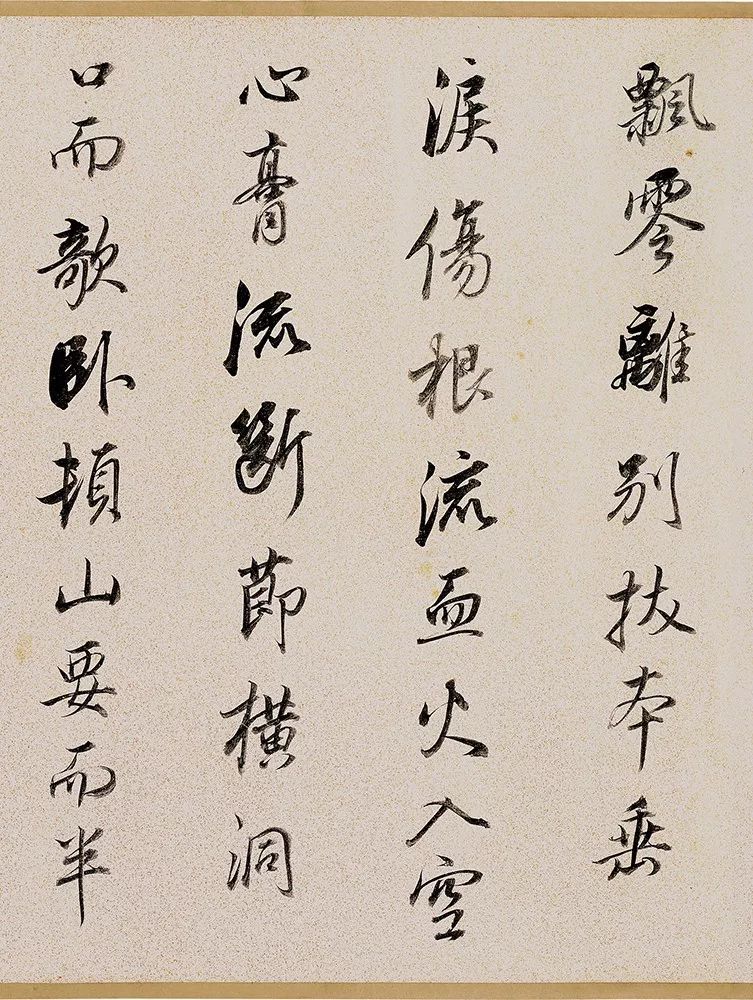 飄零離別拔本垂
淚傷根流血火入空
心膏流斷節橫洞
口而欹卧頓山要而半